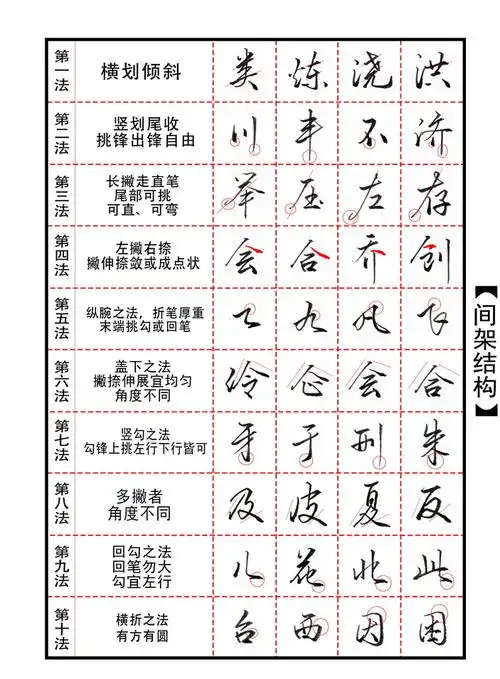 第一法
横划倾斜
类 炼 浇 洪
第二法
竖划尾收
挑锋出锋自由
川 丰 不 济
第三法
长撇走直笔
尾部可挑
可直、可弯
举 压 左 存
第四法
左撇右捺
撇伸捺敛或成点状
会 合 乔 创
第五法
纵腕之法，折笔厚重
末端挑勾或回笔
九 凡
第六法
盖下之法
撇捺伸展宜均匀
角度不同
冷 会 合
第七法
竖勾之法
勾锋上挑左行下行皆可
于 刑 朱
第八法
多撇者
角度不同
及 皮 夏 反
第九法
回勾之法
回笔勿大
勾宜左行
儿 花 此 此
第十法
横折之法
有方有圆
台 西 因 困
【间架结构】